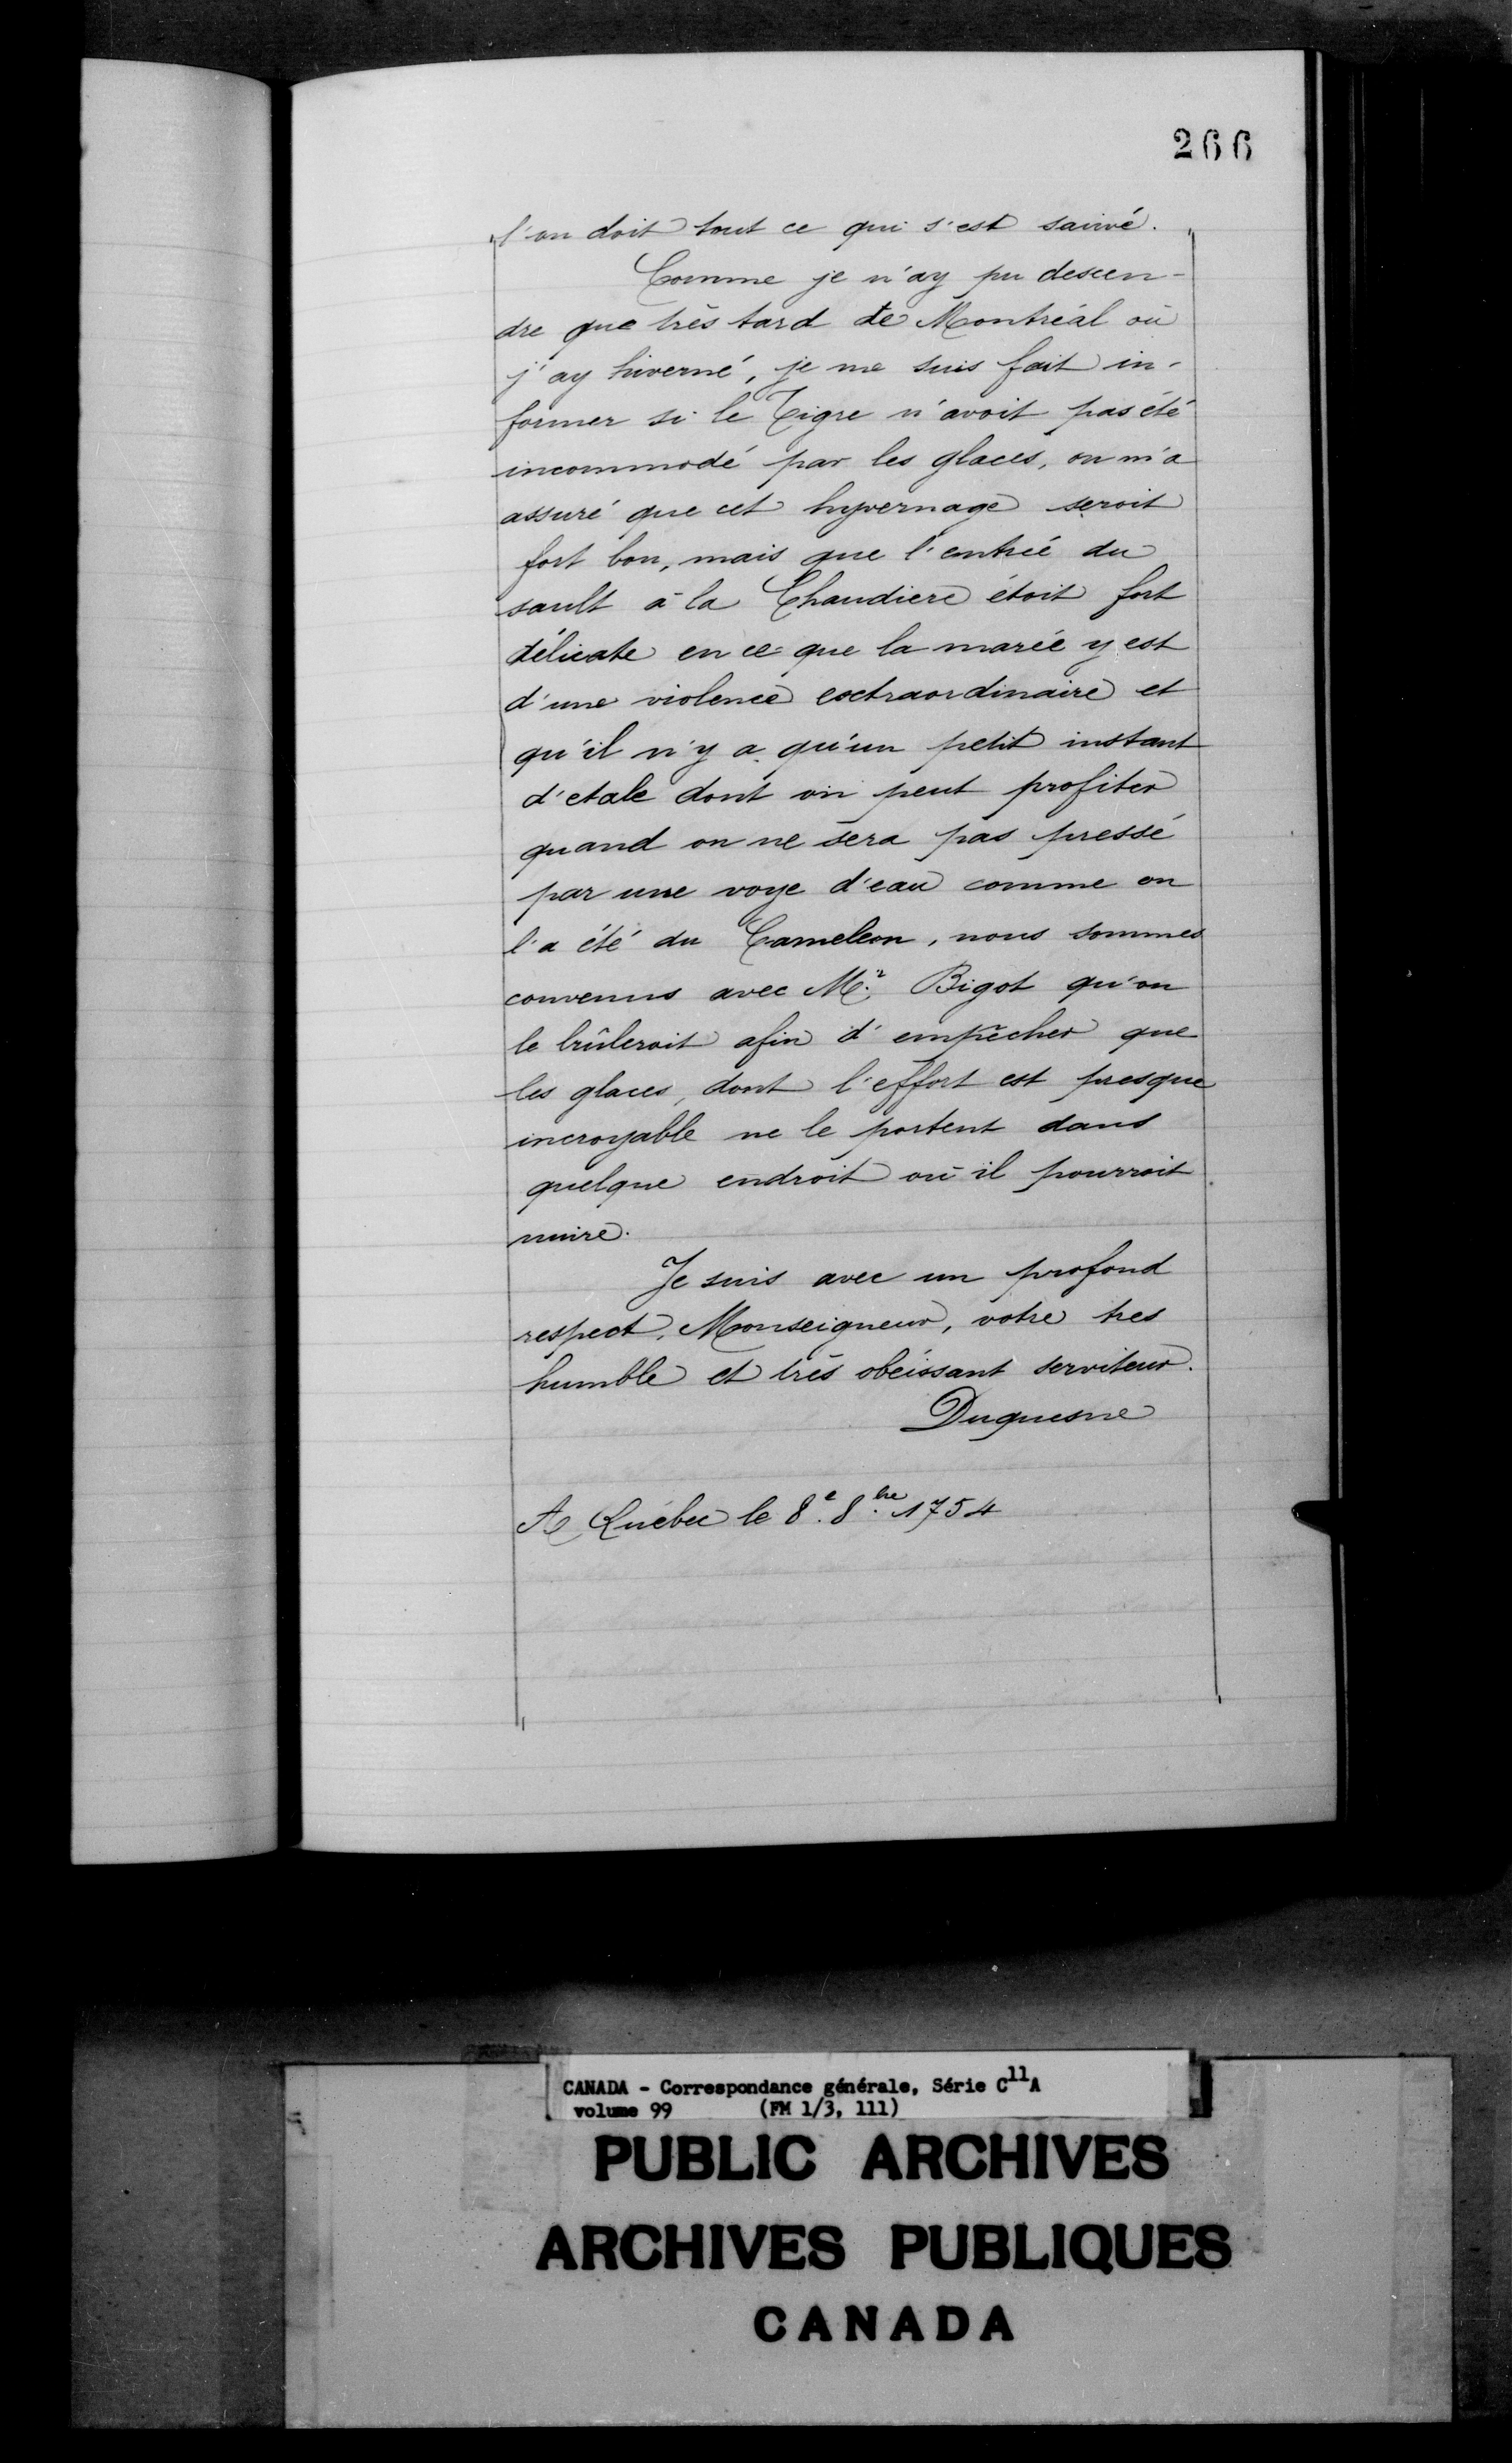 266
l'on doit tout ce qui s'est sauvé.
Comme je n'ay pu descen-
dre que très tard de Montréal où
j'ay hiverné, je me suis fait in-
former si le Tigre n'avoit pas été
incommodé par les glaces, on m'a
assuré que cet hyvernage seroit
fort bon, mais que l'entrée du
sault à la Chaudiere étoit fort
délicate en ce que la marée y est
d'une violence extraordinaire et
qu'il n'y a qu'un petit instant
d'etale dont on peut profiter
quand on ne sera pas pressé
par une voye d'eau comme on
l'a été du Cameleon, nous sommes
convenus avec Mr. Bigot qu'on
le brûleroit afin d'empêcher que
les glaces, dont l'effort est presque
incroyable ne le portent dans
quelque endroit où il pourroit
nuire.
Je suis avec un profond
respect, Monseigneur, votre tres
humble et très obéissant serviteur.
Duquesne
A Québec le 8e. 8bre. 1754
CANADA - Correspondance générale, Série C11A
volume 99 (FM 1/3, 111)
PUBLIC ARCHIVES
ARCHIVES PUBLIQUES
CANADA